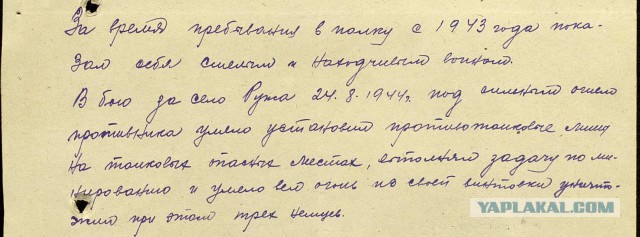 За время пребывания в полку с 1943 года пока-
зал себя смелым и находчивым воином.
В бою за село Ружа 24.8.1944г. под сильным огнем
противника умело установил противотанковые мины
на танковых опасных местах, выполняя задачу по ми-
нированию и умело вел огонь из своей винтовки уничто-
жил при этом трех немцев.
YAPLAKAL.COM